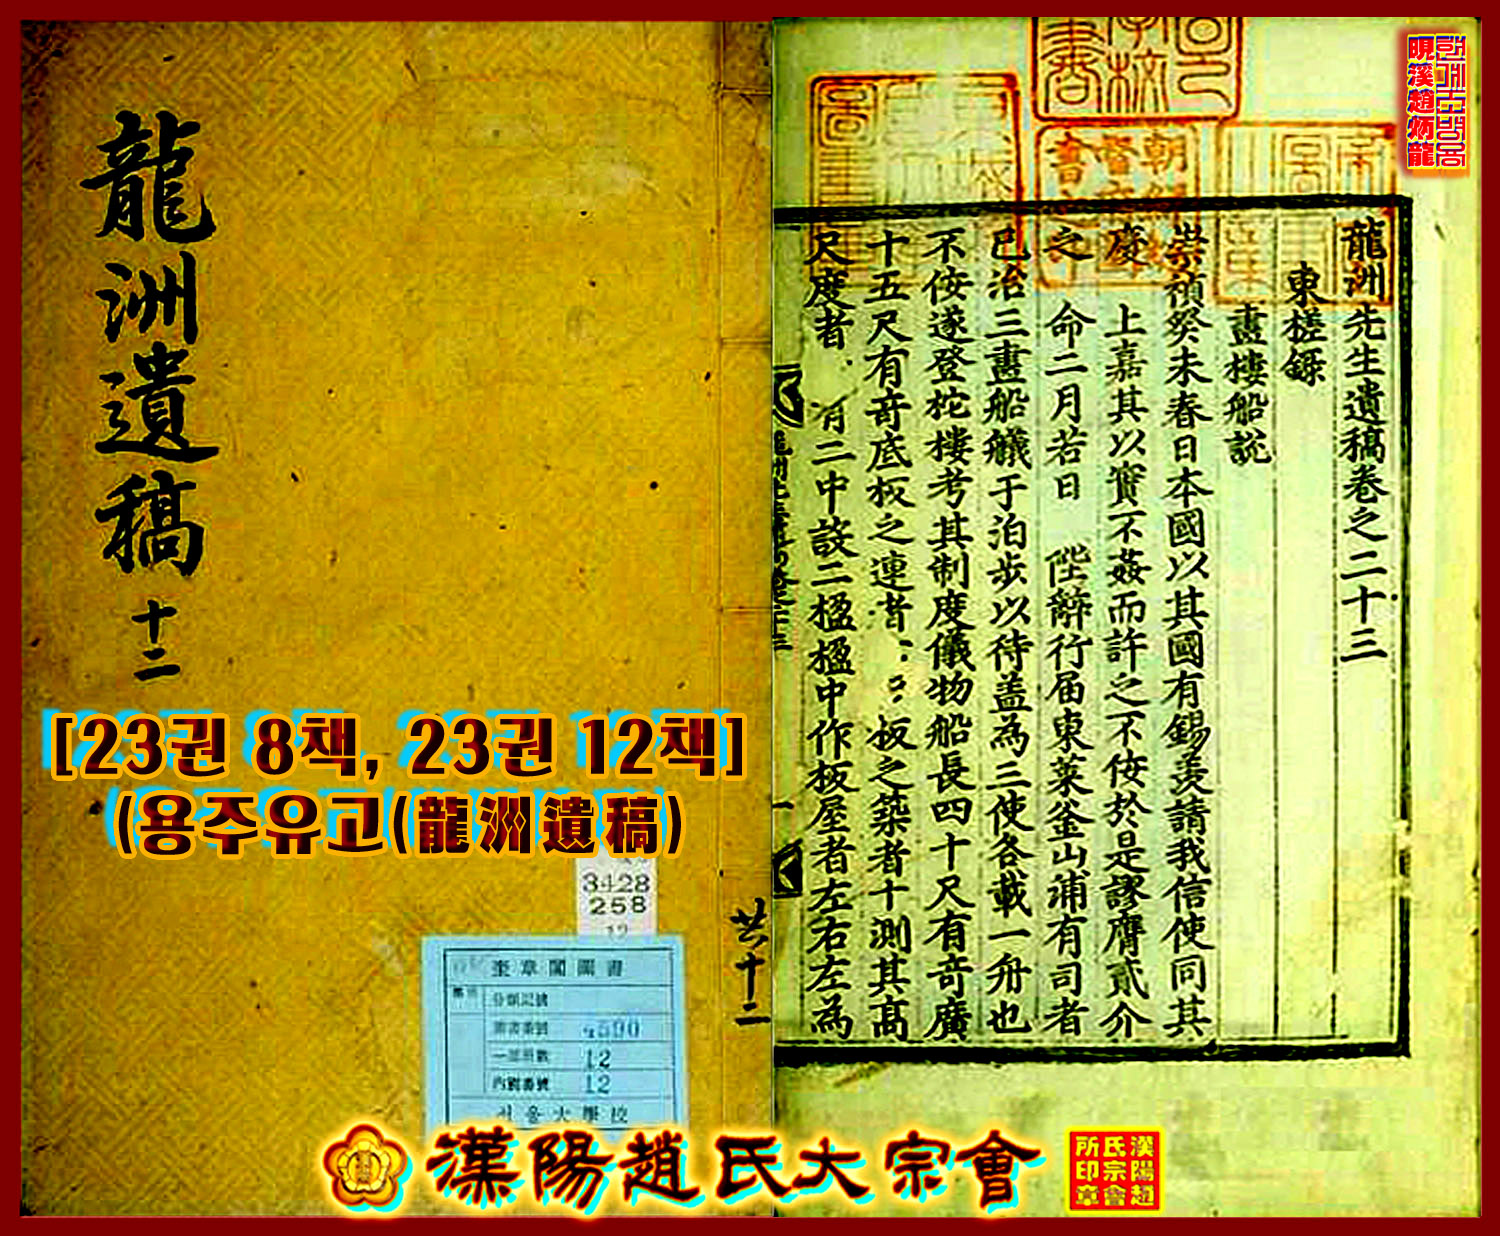 龍洲遺稿 十二
[23권 8책, 23권 12책]
(용주유고(龍洲遺稿)
3428
258
12
奎章閣圖書
分類記號
圖書番號 4590
一部冊數 12
內國番號 12
서울大學校
共十二
龍洲先生遺稿卷之二十三
東槎錄
畫樓船説
崇禎癸未春日本國以其國有錫羨請我信使同其
慶 上嘉其以實不姦而許之不佞於是謬膺貳介
之 命二月若日 陛辭行届東萊釜山浦有司者
已治三畫船艤于泊步以待盖為三使各載一舟也
不佞遂登柁樓考其制度儀物船長四十尺有奇廣
十五尺有奇底板之連者 板之築者十測其高
尺度者 有二中設二楹楹中作板屋者左右左為
漢陽趙氏大宗會
漢陽趙
氏宗會
所印章
晛溪趙炳龍